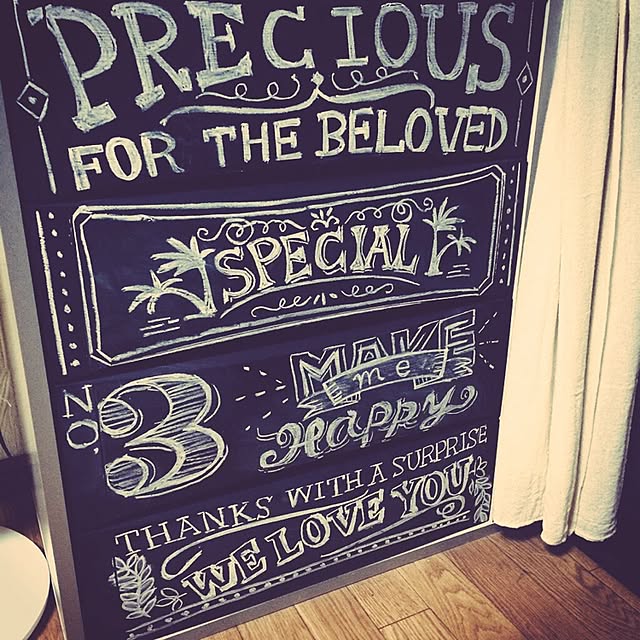 PRECIOUS
FOR THE BELOVED
SPECIAL
NO. 3
MAKE
me
Happy
THANKS WITH A SURPRISE
WE LOVE YOU